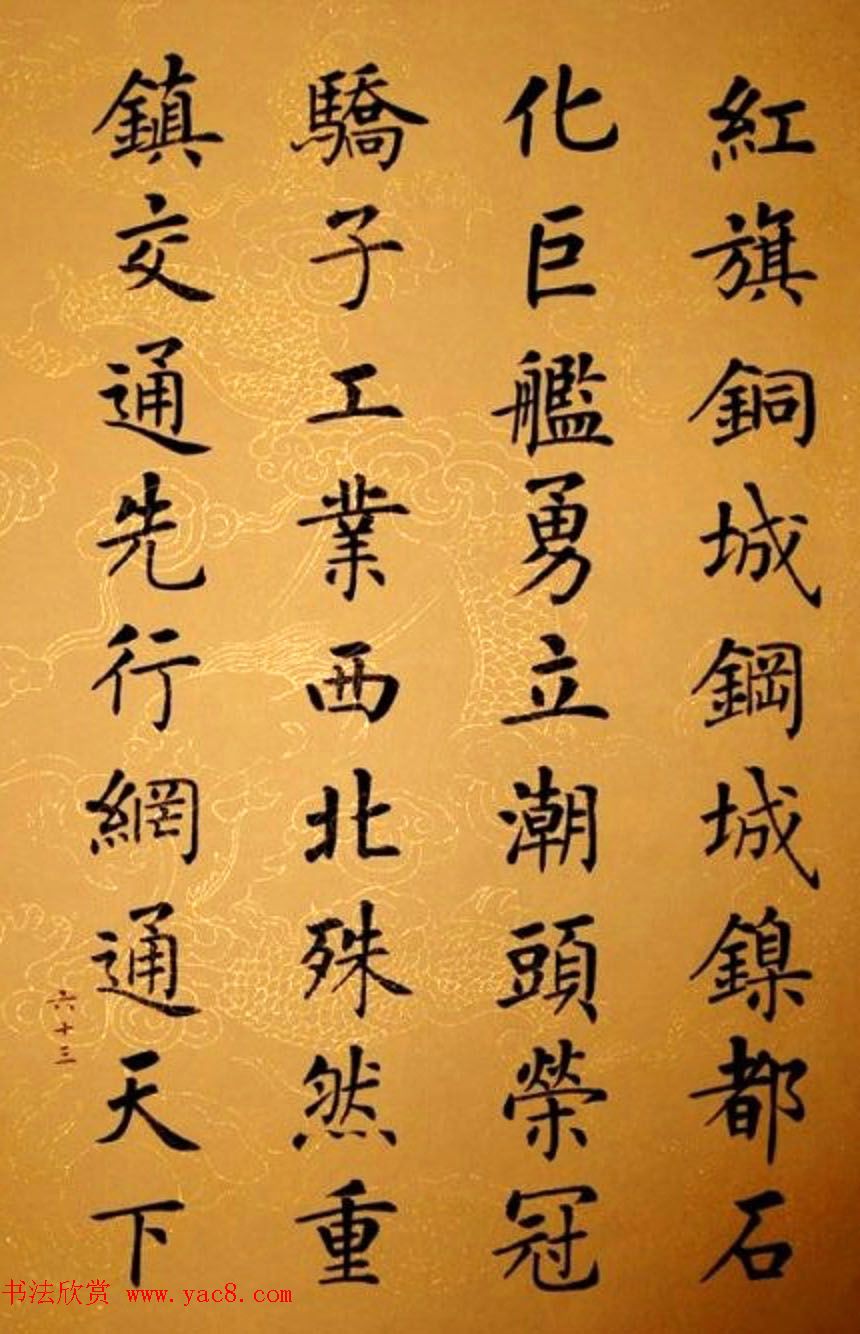 紅旗銅城鋼城鎳都石
化巨艦勇立潮頭榮冠
驕子工業西北殊然重
鎮交通先行網通天下
六十三
书法欣赏 www.yac8.com